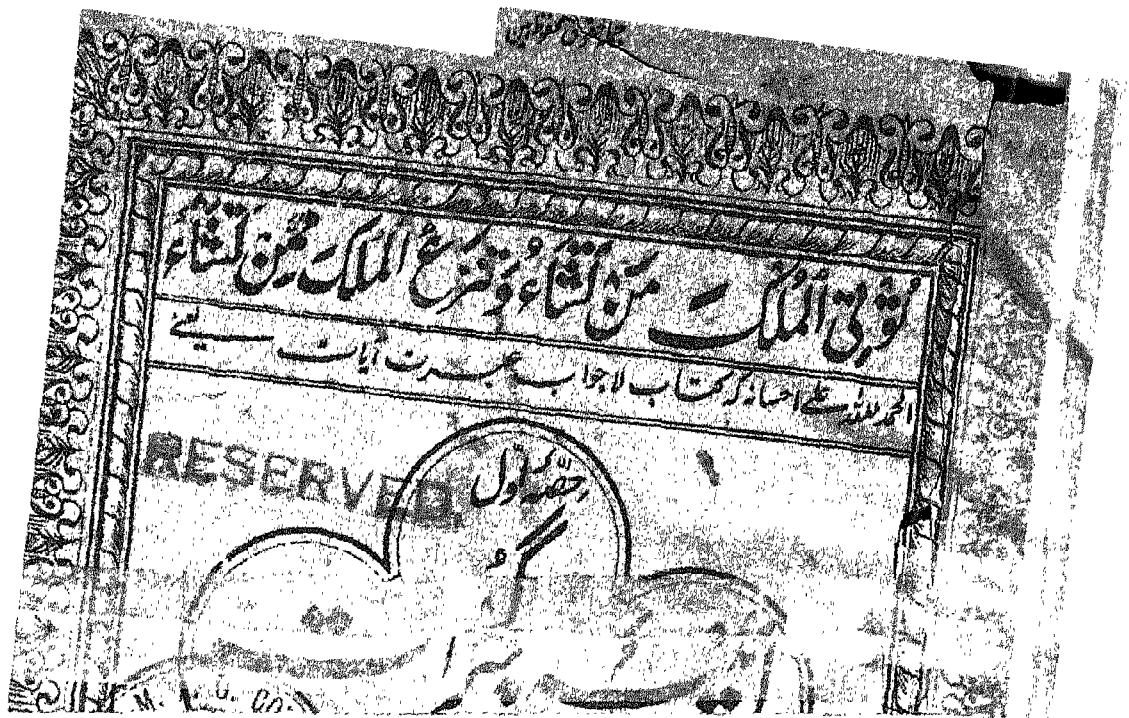 جملہ حقوق محفوظ ہیں
تُؤتِی الْمُلْکَ مَنْ تَشَاءُ وَتَنْزِعُ الْمُلْکَ مِمَّنْ تَشَاءُ
الحمد للہ علے احسانہ کہ کتاب لاجواب عبرت آیات یعنے
RESERVED.
حصّہ اول